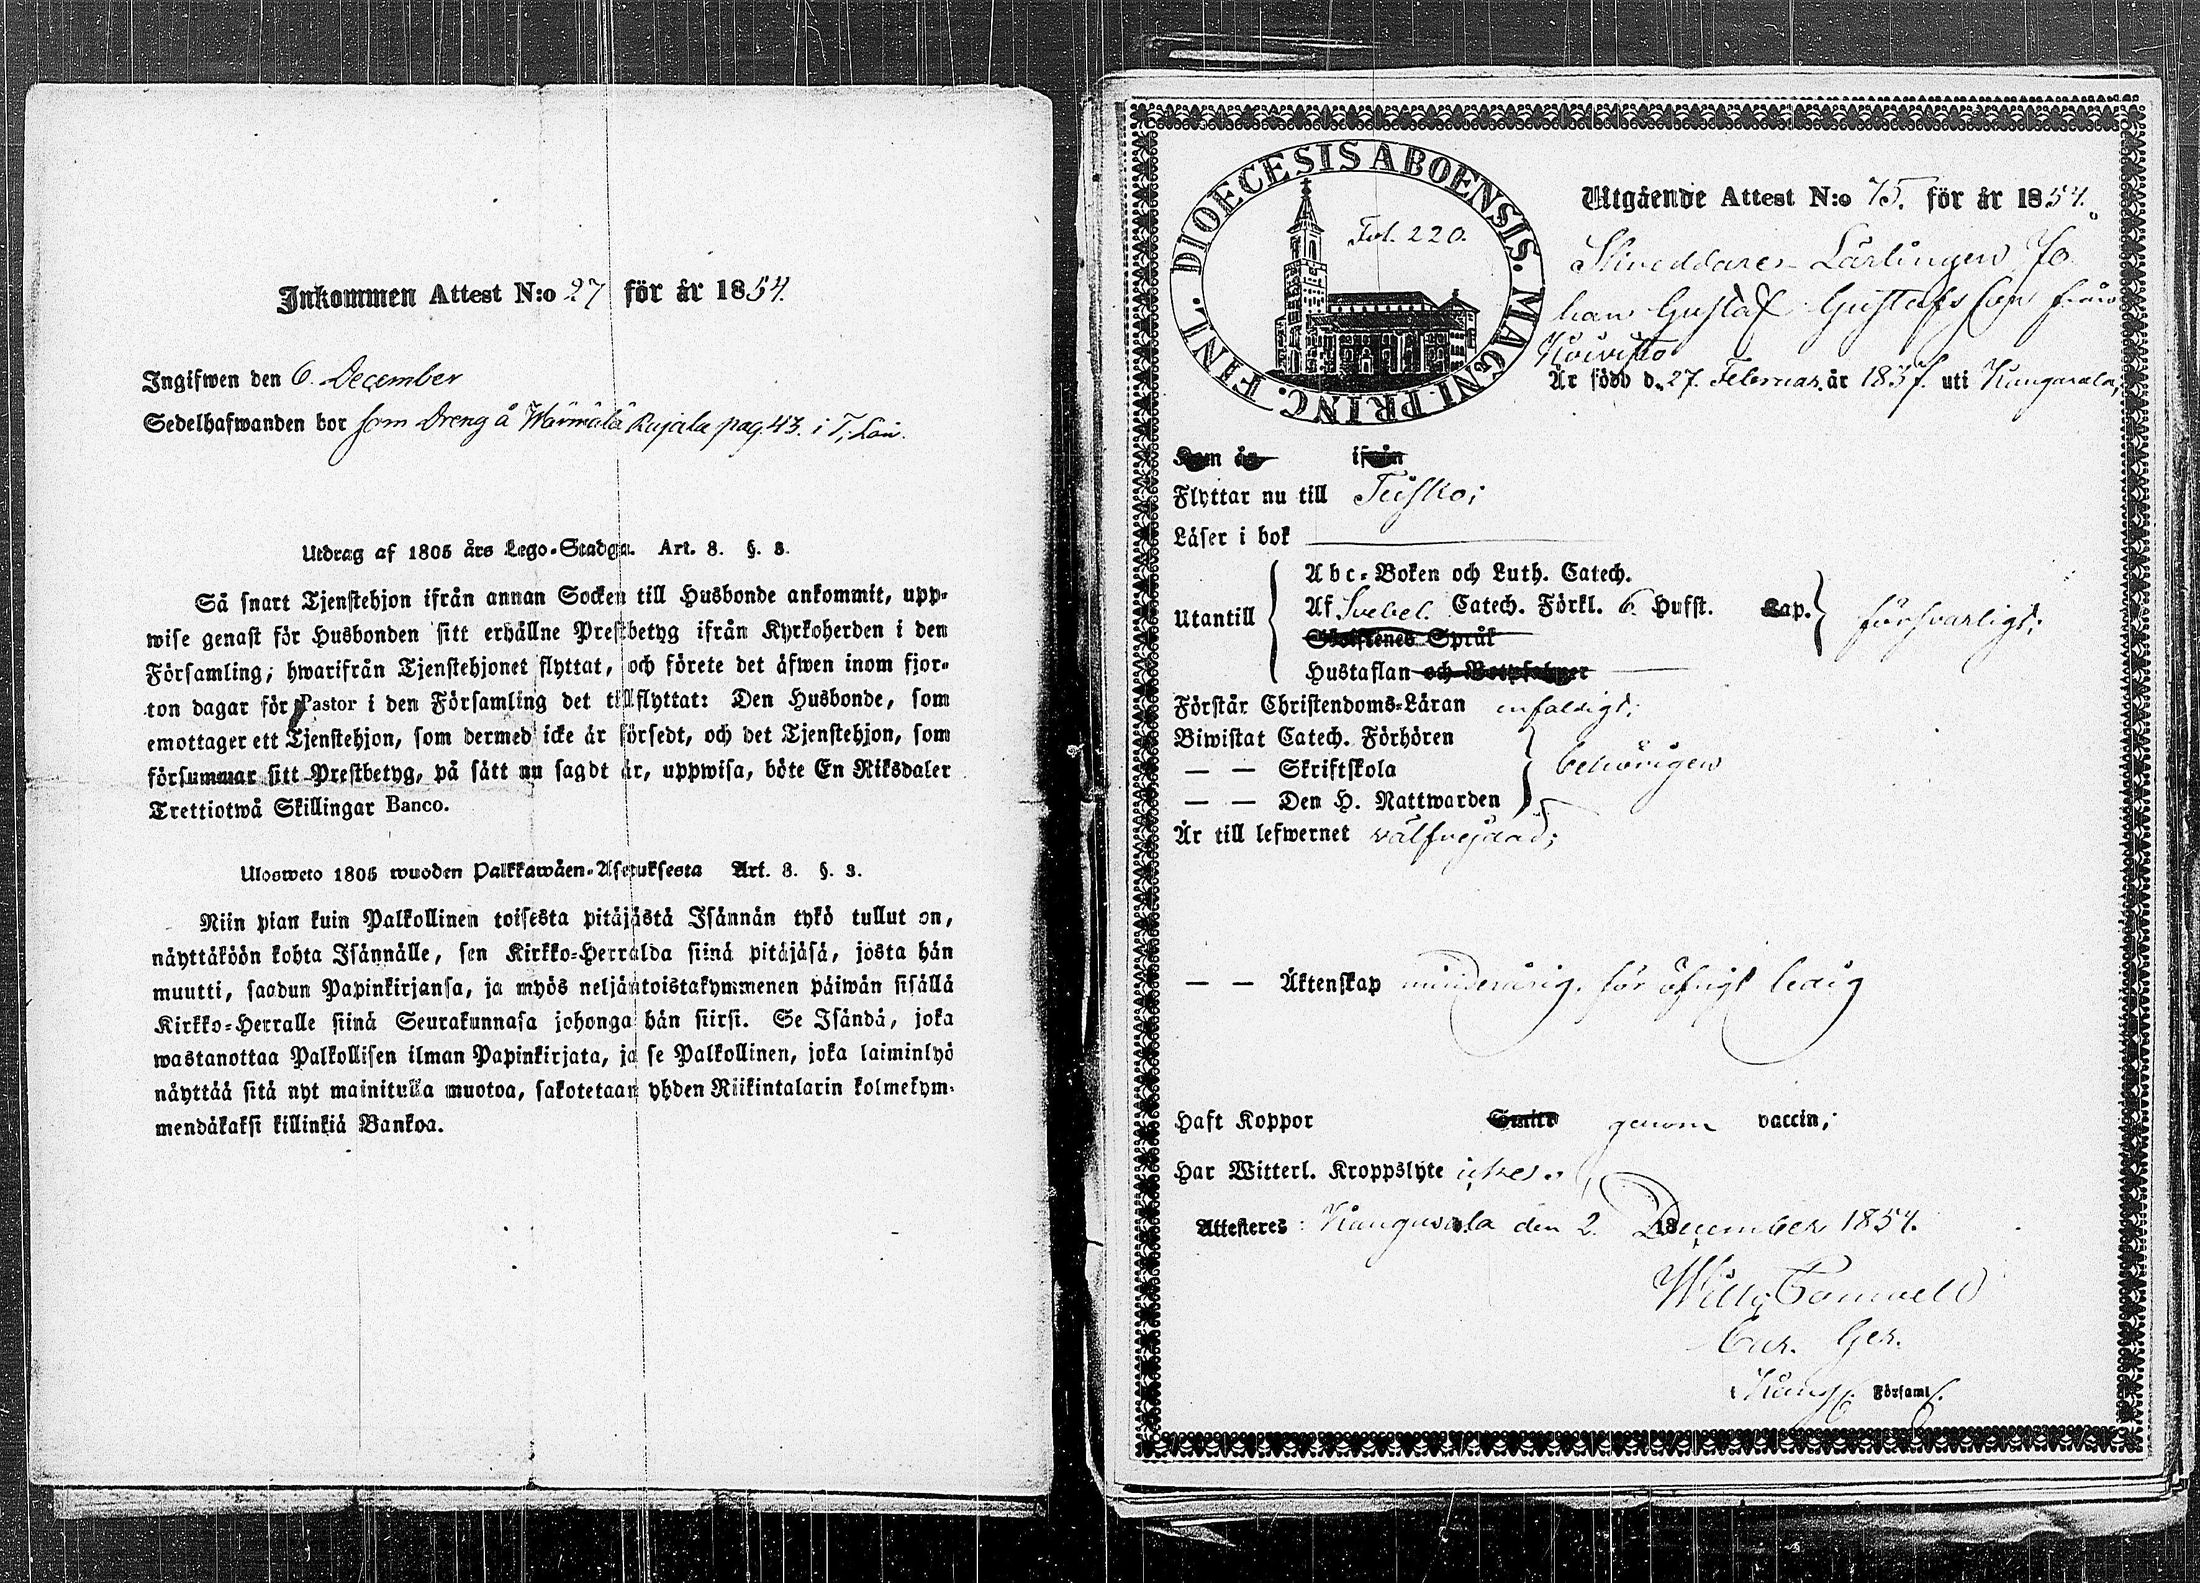 Inkommen Attest N:o 27 för år 1854.
Ingifwen den 6. December
Sedelhafwanden bor som Dreng å Wärmälä Rujala pag. 43. i T, Län.
Utdrag af 1805 års Lego-Stadga. Art. 8. §. 3.
Så snart Tjenstehjon ifrån annan Socken till Husbonde ankommit, upp-
wise genast för Husbonden sitt erhållne Prestbetyg ifrån Kyrkoherden i den
Församling, hwarifrån Tjenstehjonet flyttat, och förete det äfwen inom fjor-
ton dagar för Pastor i den Församling det tillflyttat: Den Husbonde, som
emottager ett Tjenstehjon, som dermed icke är försedt, och det Tjenstehjon, som
försummar sitt Prestbetyg, på sätt nu sagdt är, uppwisa, böte En Riksdaler
Trettiotwå Skillingar Banco.
Ulosweto 1805 wuoden Palkkawäen-Asetuksesta Art. 8. §. 3.
Niin pian kuin Palkollinen toisesta pitäjästä Isännän tykö tullut on,
näyttäköön kohta Isännälle, sen Kirkko-Herralda siinä pitäjäsä, josta hän
muutti, saadun Papinkirjansa, ja myös neljäntoistakymmenen päiwän sisällä
Kirkko-Herralle siinä Seurakunnasa johonga hän siirsi. Se Isändä, joka
wastanottaa Palkollisen ilman Papinkirjata, ja se Palkollinen, joka laiminlyö
näyttää sitä nyt mainitulla muotoa, sakotetaan yhden Riikintalarin kolmekym-
mendäkaksi killinkiä Bankoa.
DIOECESIS ABOENSIS. MAGNI PRINC. FINL.
Fol. 220.
Utgående Attest N:o 75. för år 1854.
Skreddare-Lärlingen Jo-
han Gustaf Gustafsson från
Koivisto
Är född d. 27. Februar. år 1837. uti Kangasala,
Kom år ifrån
Flyttar nu till Teisko;
Läser i bok
Abc-Boken och Luth. Catech.
Utantill Af Svebel. Catech. Förkl. 6. Hufst. Kap. försvarligt;
Skriftenes Språk
Hustaflan och
Förstår Christendoms-Läran enfaldigt;
Biwistat Catech. Förhören
— — Skriftskola behörigen
— — Den H. Nattwarden
Är till lefwernet välfrejdad;
— — Äktenskap minderårig, för öfrigt ledig
Haft Koppor Smitt genom vaccin;
Har Witterl. Kroppslyte icke.
Attesteres: Kangasala den 2. December 1854.
Cur. Ger.
Kang. Församl.